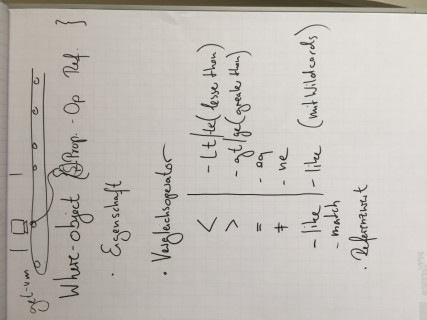 get-vm
Where-object { $_.Prop. -Op Ref. }
· Eigenschaft
· Vergleichsoperator
< - Lt/le (lesse then)
> - gt/ge (greater then)
= - eq
≠ - ne
- like - like (mit Wildcards)
- match
· Referenzwert